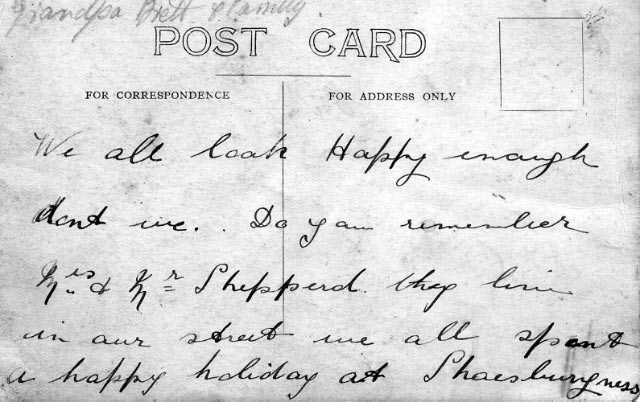 Grandpa Brett & family
POST CARD
FOR CORRESPONDENCE
FOR ADDRESS ONLY
We all look Happy enough
dont we. Do you remember
Mrs & Mr Shepperd they live
in our street we all spent
a happy holiday at Shoesburyness